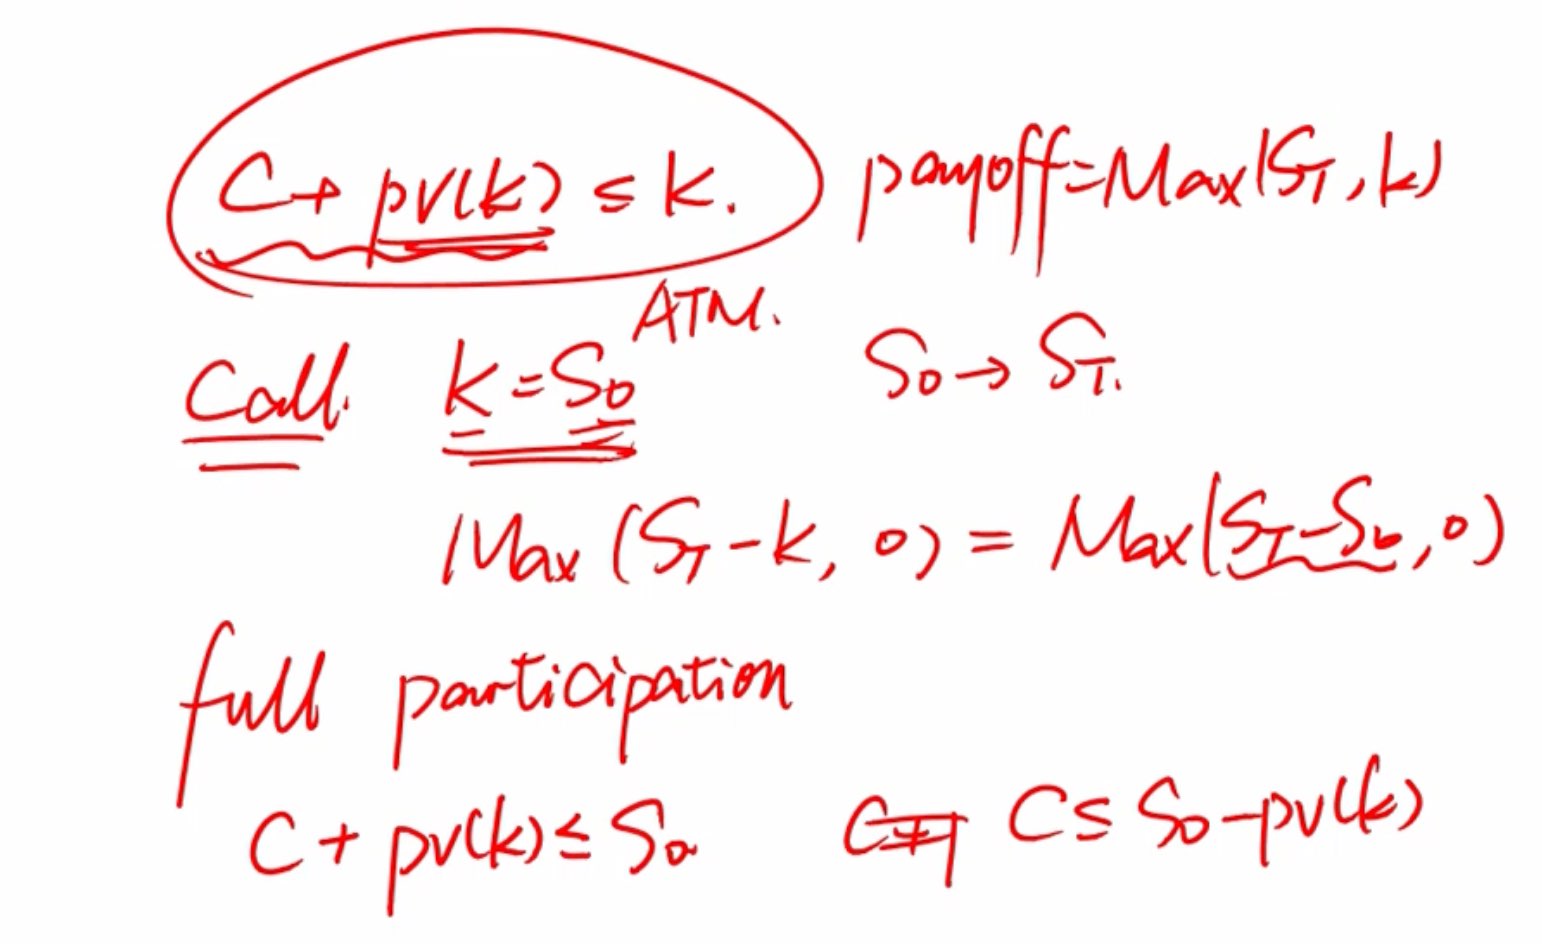 C + pv(k) ≤ k. payoff = Max(S_T, k)
ATM.
Call. k = S_0 S_0 → S_T.
Max (S_T - k, 0) = Max(S_T - S_0, 0)
full participation
C + pv(k) ≤ S_0. C ≤ S_0 - pv(k)